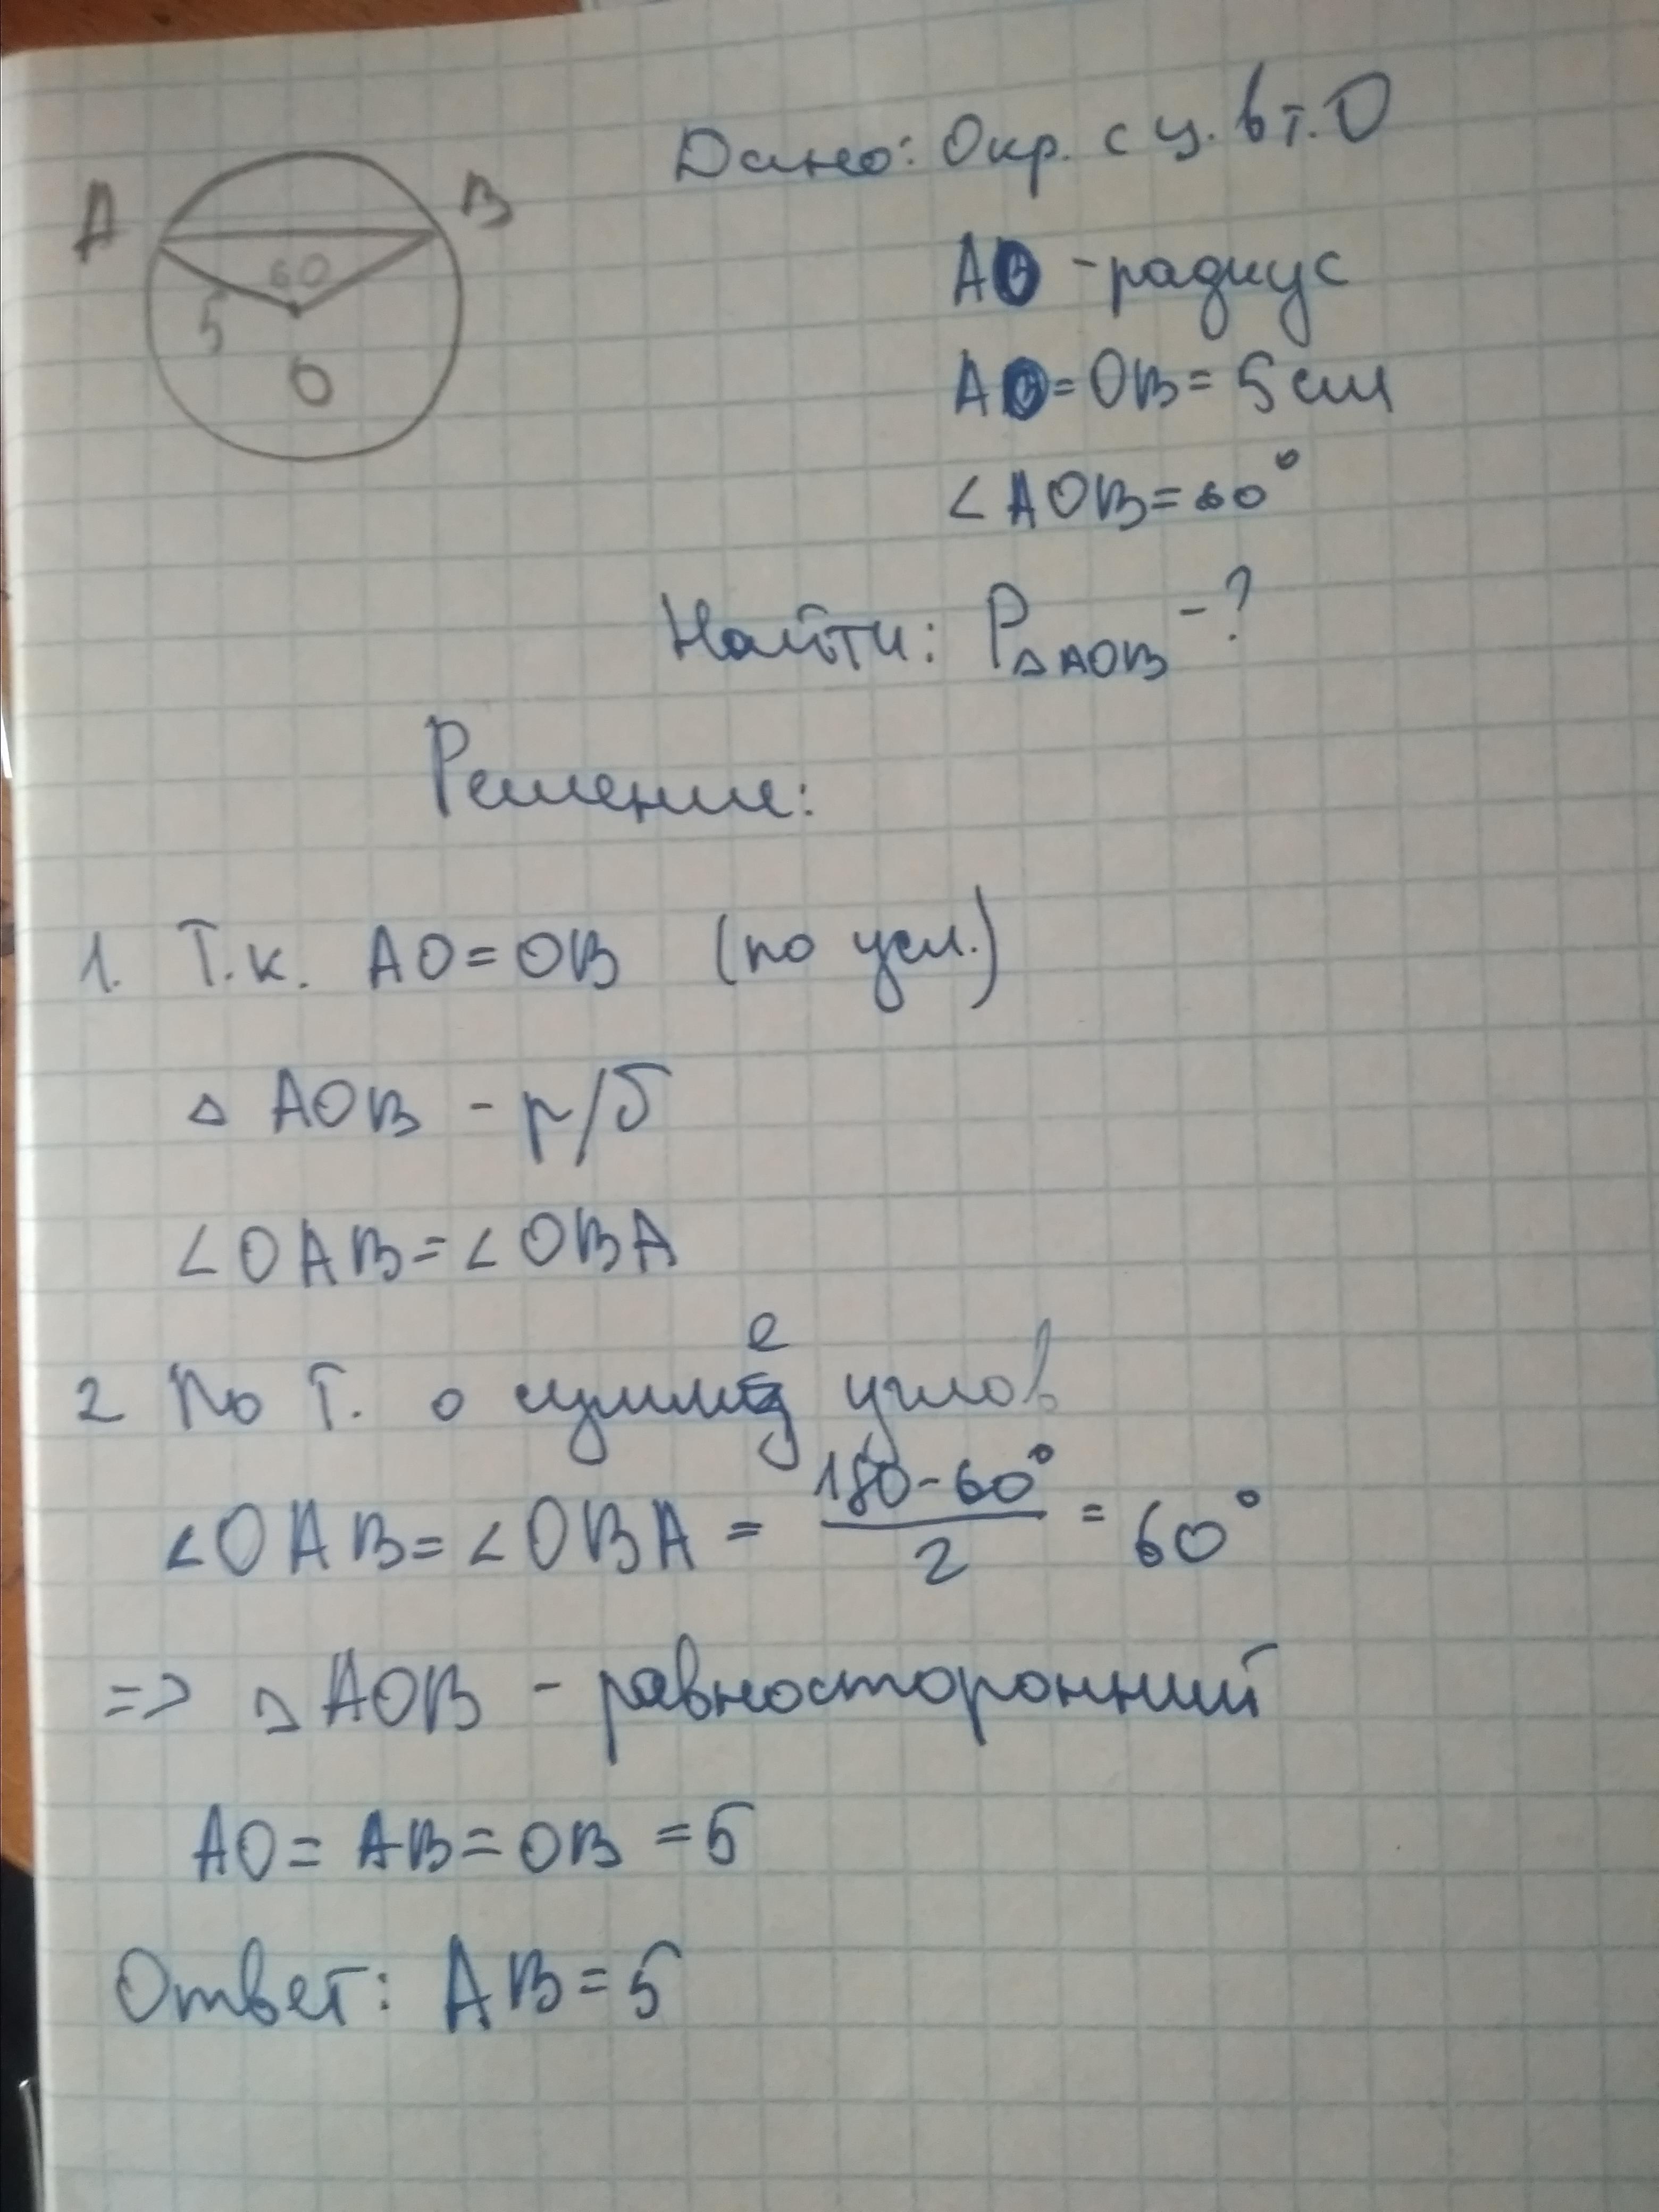 A
B
60
5
O
Дано: Окр. с ц. в т. O
AO - радиус
AO = OB = 5 см
∠AOB = 60°
Найти: P△AOB - ?
Решение:
1. Т.к. AO = OB (по усл.)
△ AOB - р/б
∠OAB = ∠OBA
2 По т. о сумме углов
∠OAB = ∠OBA = (180 - 60°)/2 = 60°
=> △ AOB - равносторонний
AO = AB = OB = 5
Ответ: AB = 5